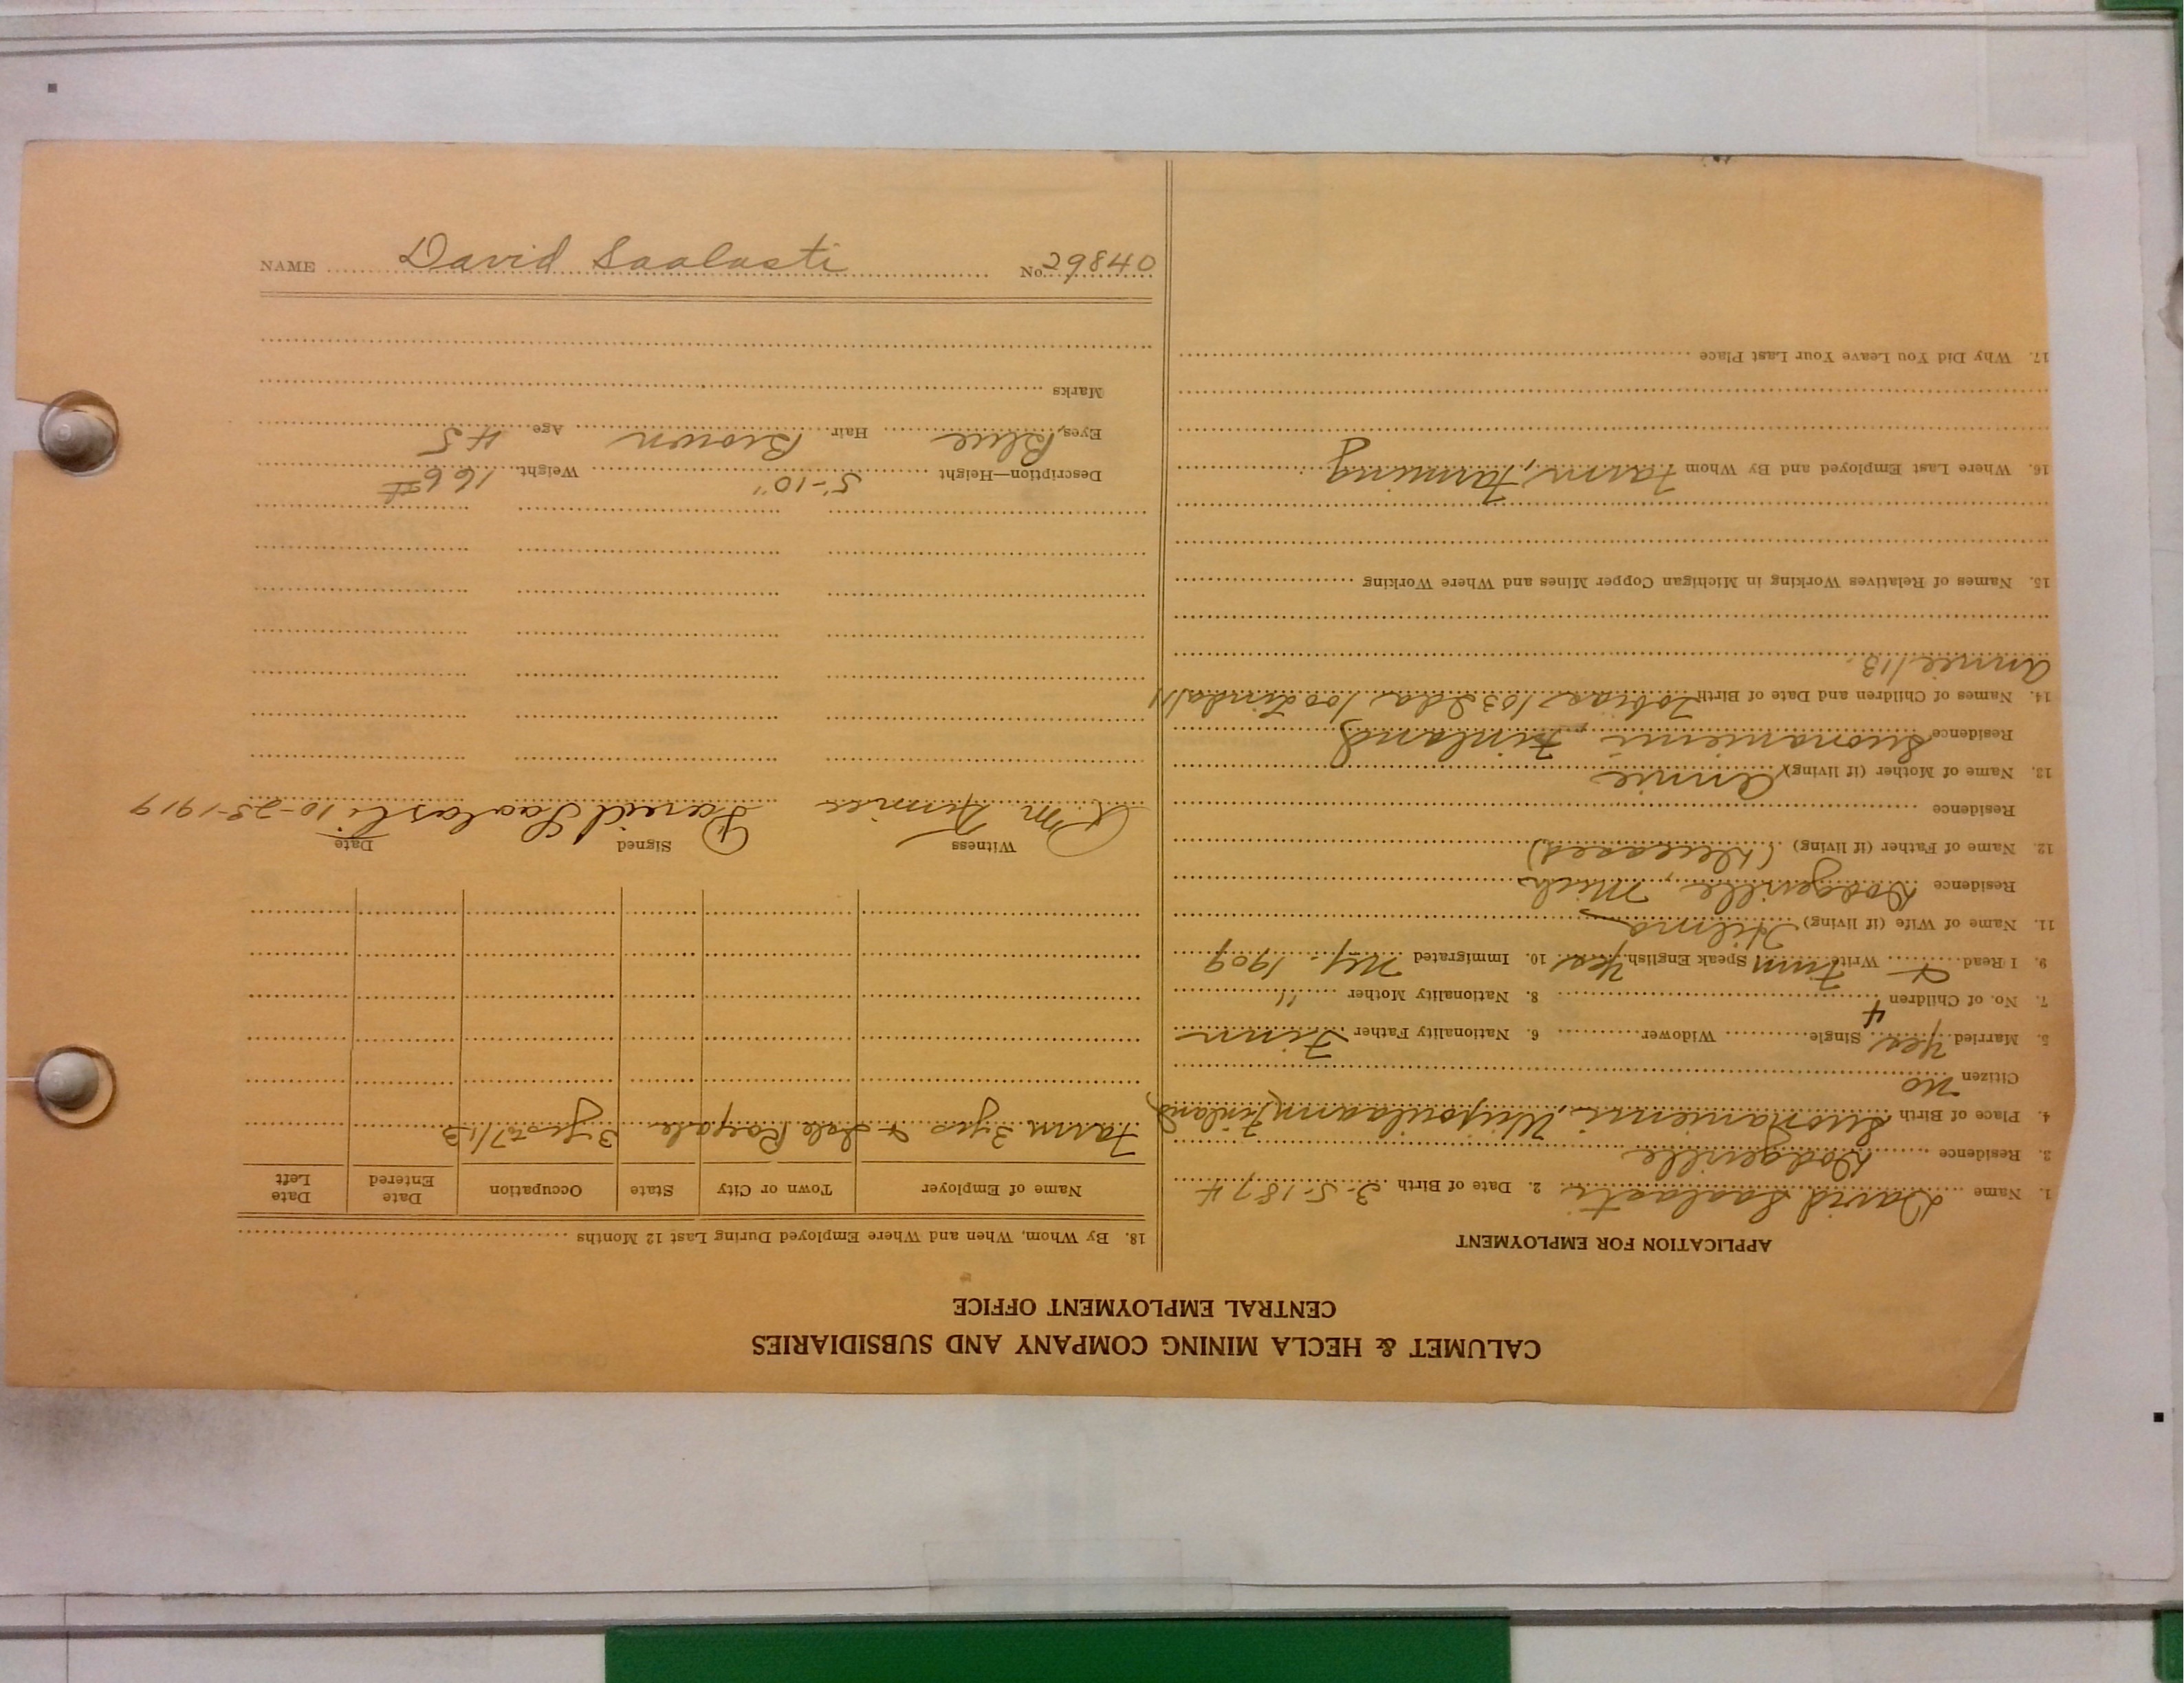 CALUMET & HECLA MINING COMPANY AND SUBSIDIARIES
CENTRAL EMPLOYMENT OFFICE
APPLICATION FOR EMPLOYMENT
1. Name David Saalasti 2. Date of Birth 3-5-1874
3. Residence Dodgeville
4. Place of Birth Suonamiemi, Finland
Citizen No
5. Married Yes Single Widower 6. Nationality Father Finn
7. No. of Children 4 8. Nationality Mother "
9. I Read & Write Finn Speak English Yes 10. Immigrated 1909
11. Name of Wife (if living) Hilma
Residence Dodgeville, Mich
12. Name of Father (if living) (Deceased)
Residence
13. Name of Mother (if living) Annie
Residence Suonamiemi, Finland
14. Names of Children and Date of Birth Tobias/03 Ida/00 Linda/11
Annie/13.
15. Names of Relatives Working in Michigan Copper Mines and Where Working
16. Where Last Employed and By Whom Farm, Farming
17. Why Did You Leave Your Last Place
18. By Whom, When and Where Employed During Last 12 Months
Name of Employer Town or City State Occupation Date Entered Date Left
Farm 3 yrs & Isle Royale 3 yrs to 7/13
Witness Signed Date
David Saalasti 10-28-1919
Description—Height 5'-10" Weight 166#
Eyes Blue Hair Brown Age 45
Marks
NAME David Saalasti No. 29840